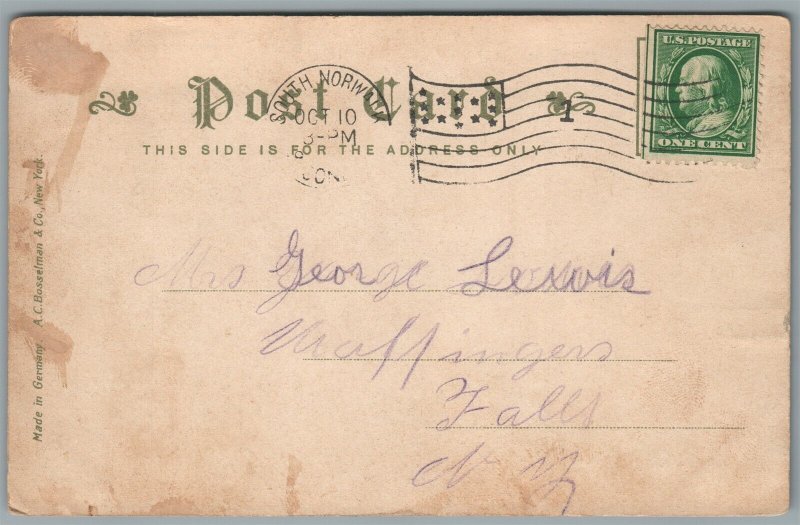 Post Card
THIS SIDE IS FOR THE ADDRESS ONLY
SOUTH NORWALK
OCT 10
8-PM
CONN
1
U.S. POSTAGE
ONE CENT
Mrs George Lewis
Wappingers
Falls
N Y
Made in Germany. A.C. Bosselman & Co., New York.